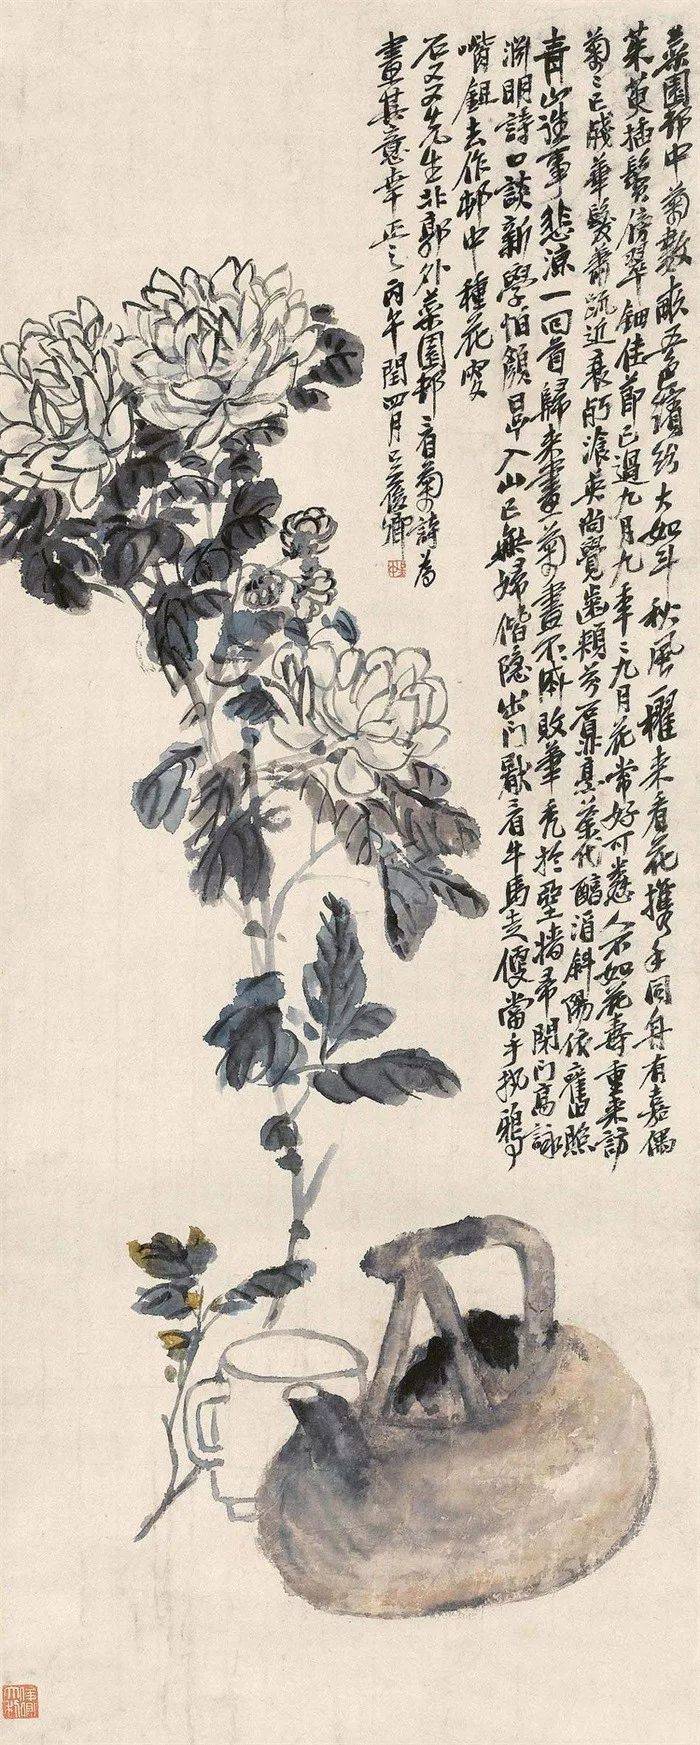 菜園邨中菊數畝五色繽紛大如斗秋風一櫂來看花攜手同舟有嘉偶
茱萸插鬢傍翠鈿佳節已過九月九年二九月花常好可愁人不如花壽重來訪
菊二已殘華髮蕭疏近衰朽湌英尚覺齒頰芬烹葉代醋酒斜陽依舊照
青山迋事悲涼一回首歸來畫菊畫不成敗筆禿於堊牆帚閉門高詠
淵明詩口談新學怕顏厚入山已無婦偕隱出門厭看牛馬走便當手把鴉
嘴鉏去作邨中種花叟
石又又先生北郭外菜園邨二看菊詩為
畫其意幸正之丙午閏四月吳俊卿